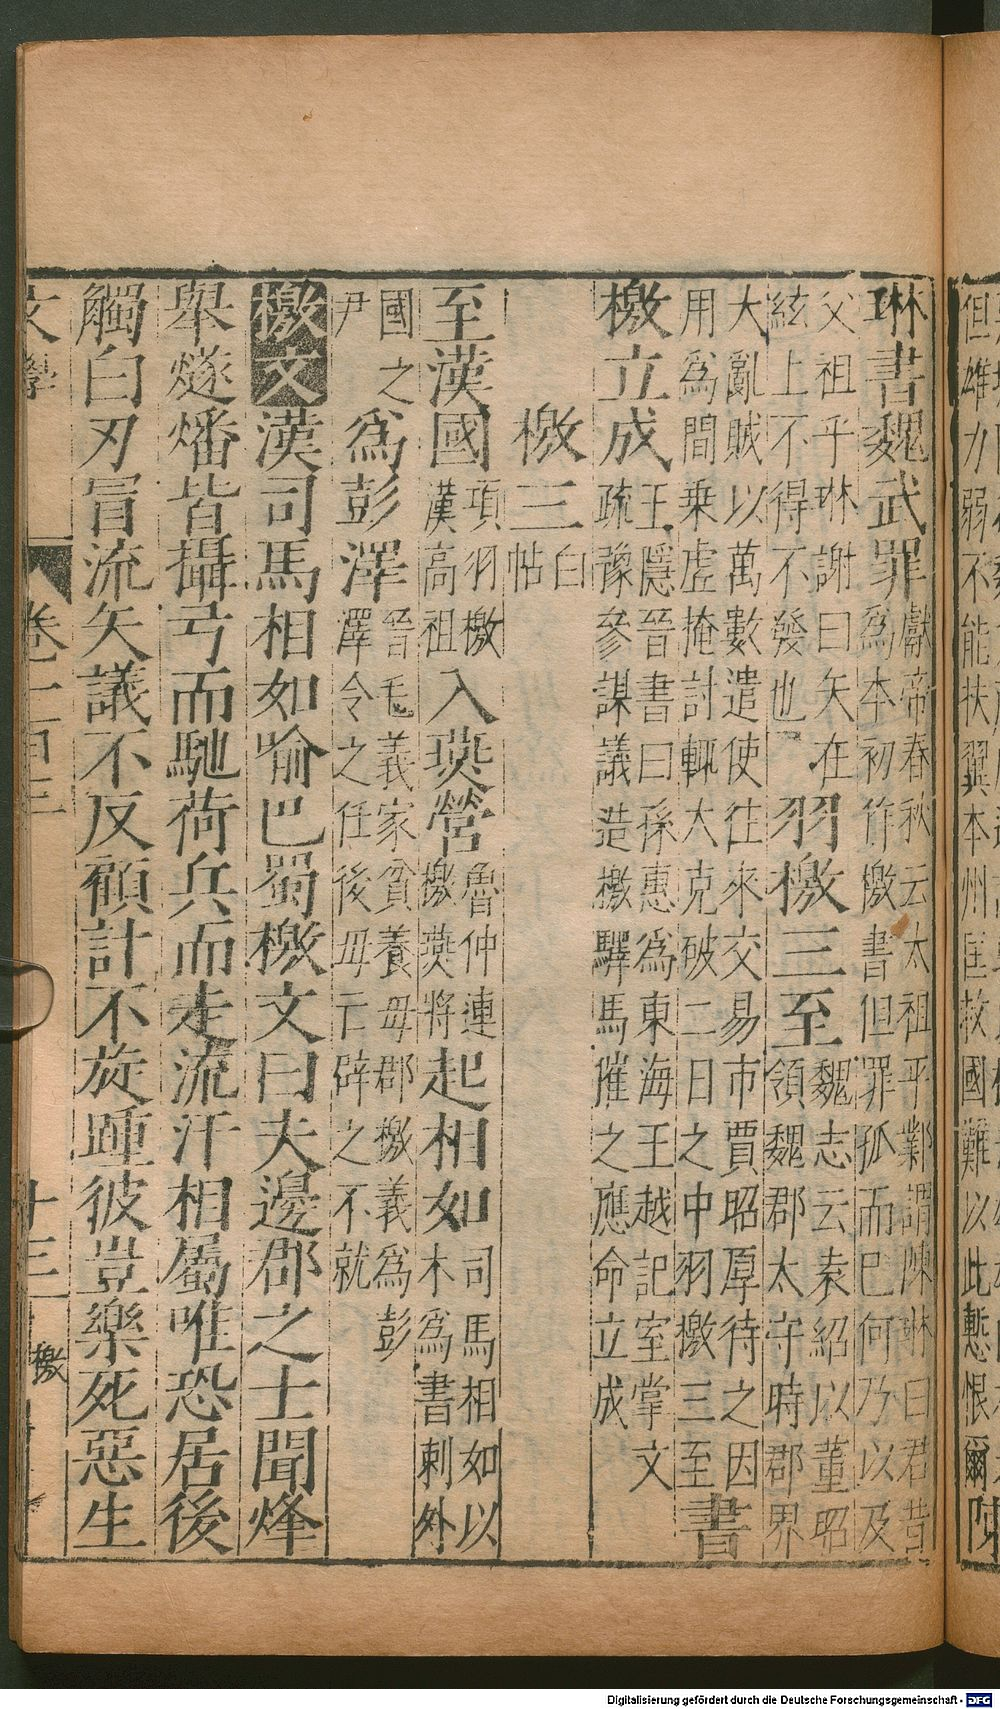 但雄力弱不能扶翼本州匡救國難以此慙恨爾陳
琳書魏武罪獻帝春秋云太祖平鄴謂陳琳曰君昔
為本初作檄書但罪孤而巳何乃以及
父祖乎琳謝曰矢在
絃上不得不發也羽檄三至魏志云袁紹以董昭
領魏郡太守時郡界
大亂賊以萬數遣使往來交易市賈昭厚待之因
用爲間乗虗掩討輒大克破二日之中羽檄三至書
檄立成王隱晉書曰孫惠爲東海王越記室掌文
疏豫參謀議造檄驛馬催之應命立成
檄三白
帖
至漢國項羽檄
漢高祖入燕營魯仲連
檄燕將起相如司馬相如以
木爲書刺外
國之
尹爲彭澤晉毛義家貧養毋郡檄義爲彭
澤令之任後毋亡辟之不就
檄文漢司馬相如喻巴蜀檄文曰夫邊郡之士聞烽
舉燧燔皆攝弓而馳荷兵而走流汗相屬唯恐居後
觸白刃冒流矢議不反顧計不旋踵彼豈樂死惡生
文學 卷一百三 十三 檄
Digitalisierung gefördert durch die Deutsche Forschungsgemeinschaft - DFG